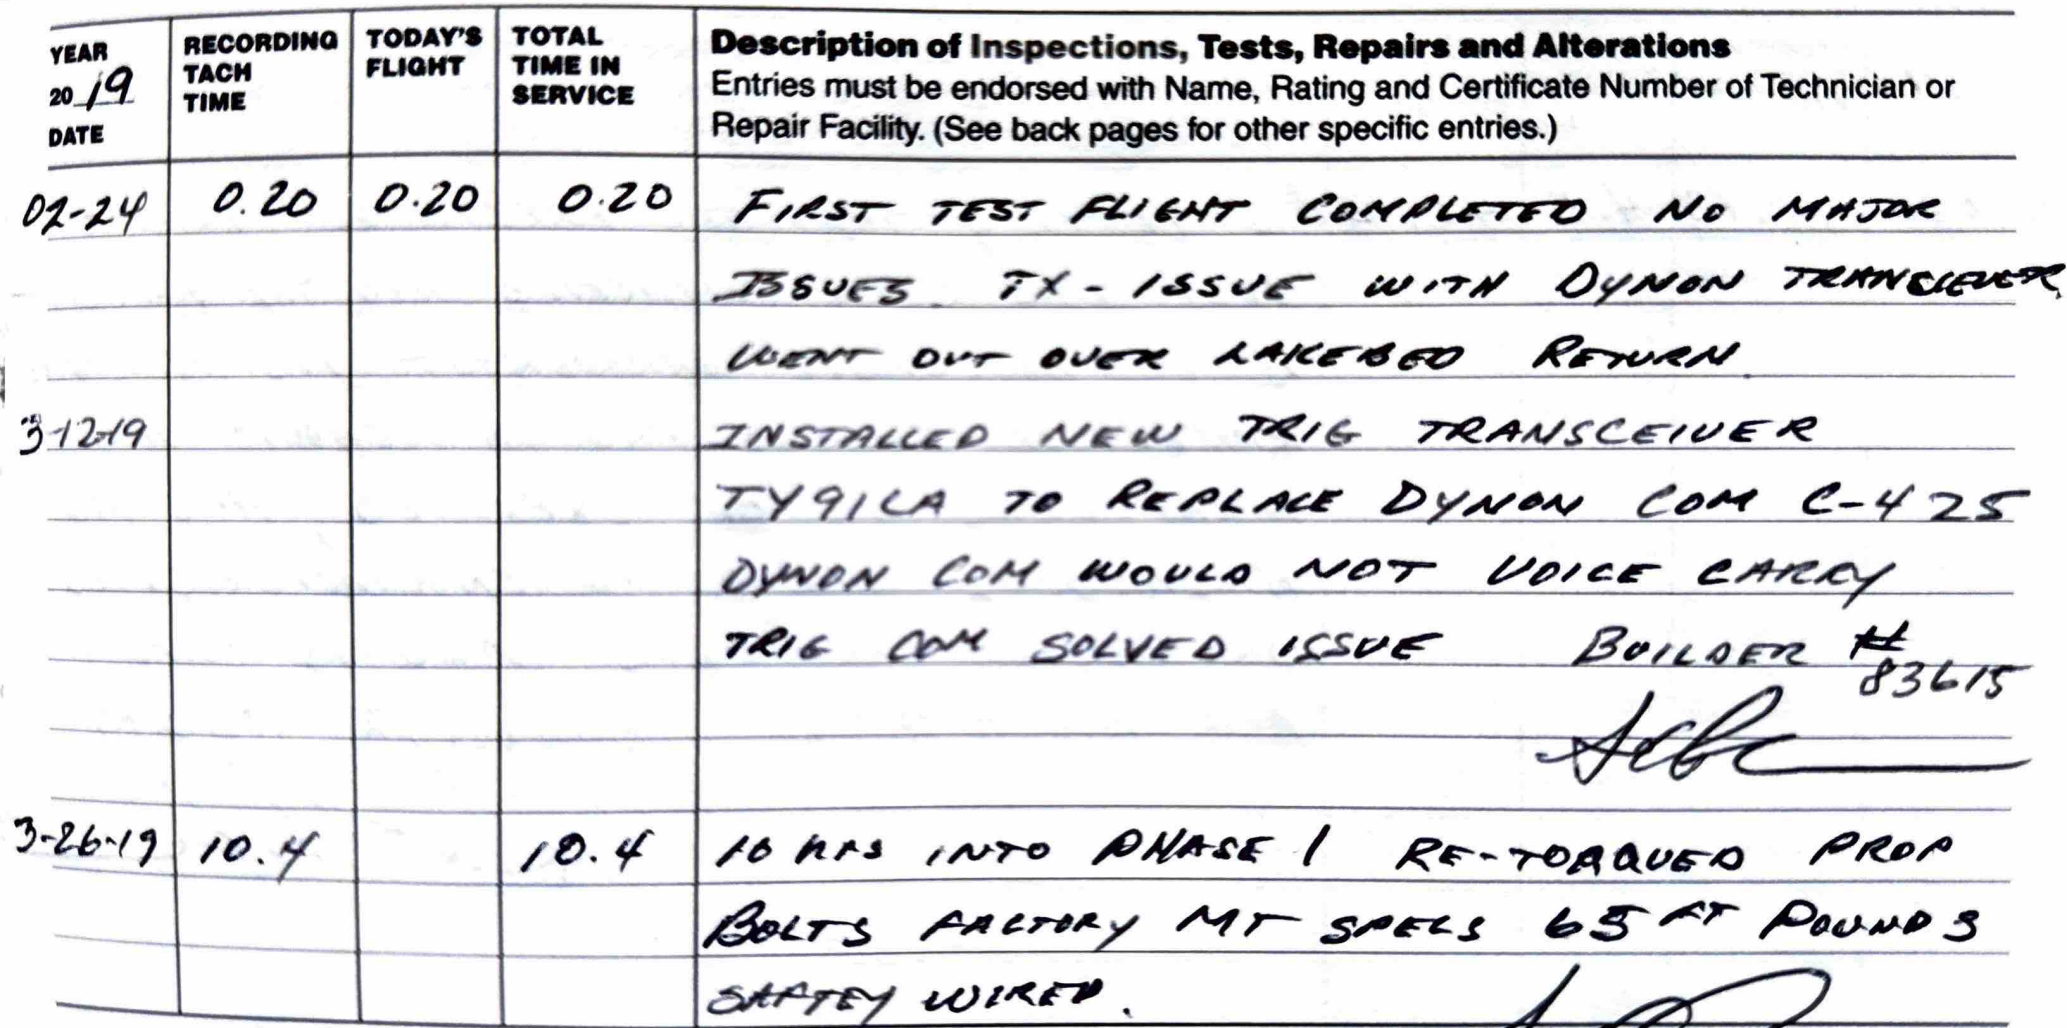 YEAR 2019 DATE
RECORDING TACH TIME
TODAY'S FLIGHT
TOTAL TIME IN SERVICE
Description of Inspections, Tests, Repairs and Alterations
Entries must be endorsed with Name, Rating and Certificate Number of Technician or
Repair Facility. (See back pages for other specific entries.)
02-24 0.20 0.20 0.20 FIRST TEST FLIGHT COMPLETED NO MAJOR
ISSUES. TX - ISSUE WITH DYNON TRANCIEVER
WENT OUT OVER LAKEBED RETURN
3-12-19 INSTALLED NEW TRIG TRANSCEIVER
TY91LA TO REPLACE DYNON COM C-425
DYNON COM WOULD NOT VOICE CARRY
TRIG COM SOLVED ISSUE BUILDER #
83615
3-26-19 10.4 10.4 10 HRS INTO PHASE 1 RE-TORQUED PROP
BOLTS FACTORY MT SPECS 65 FT POUNDS
SAFTEY WIRED.